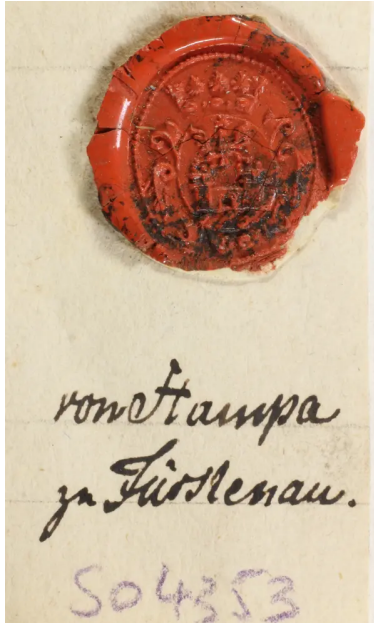 von Stampa
zu Fürstenau.
SO4353